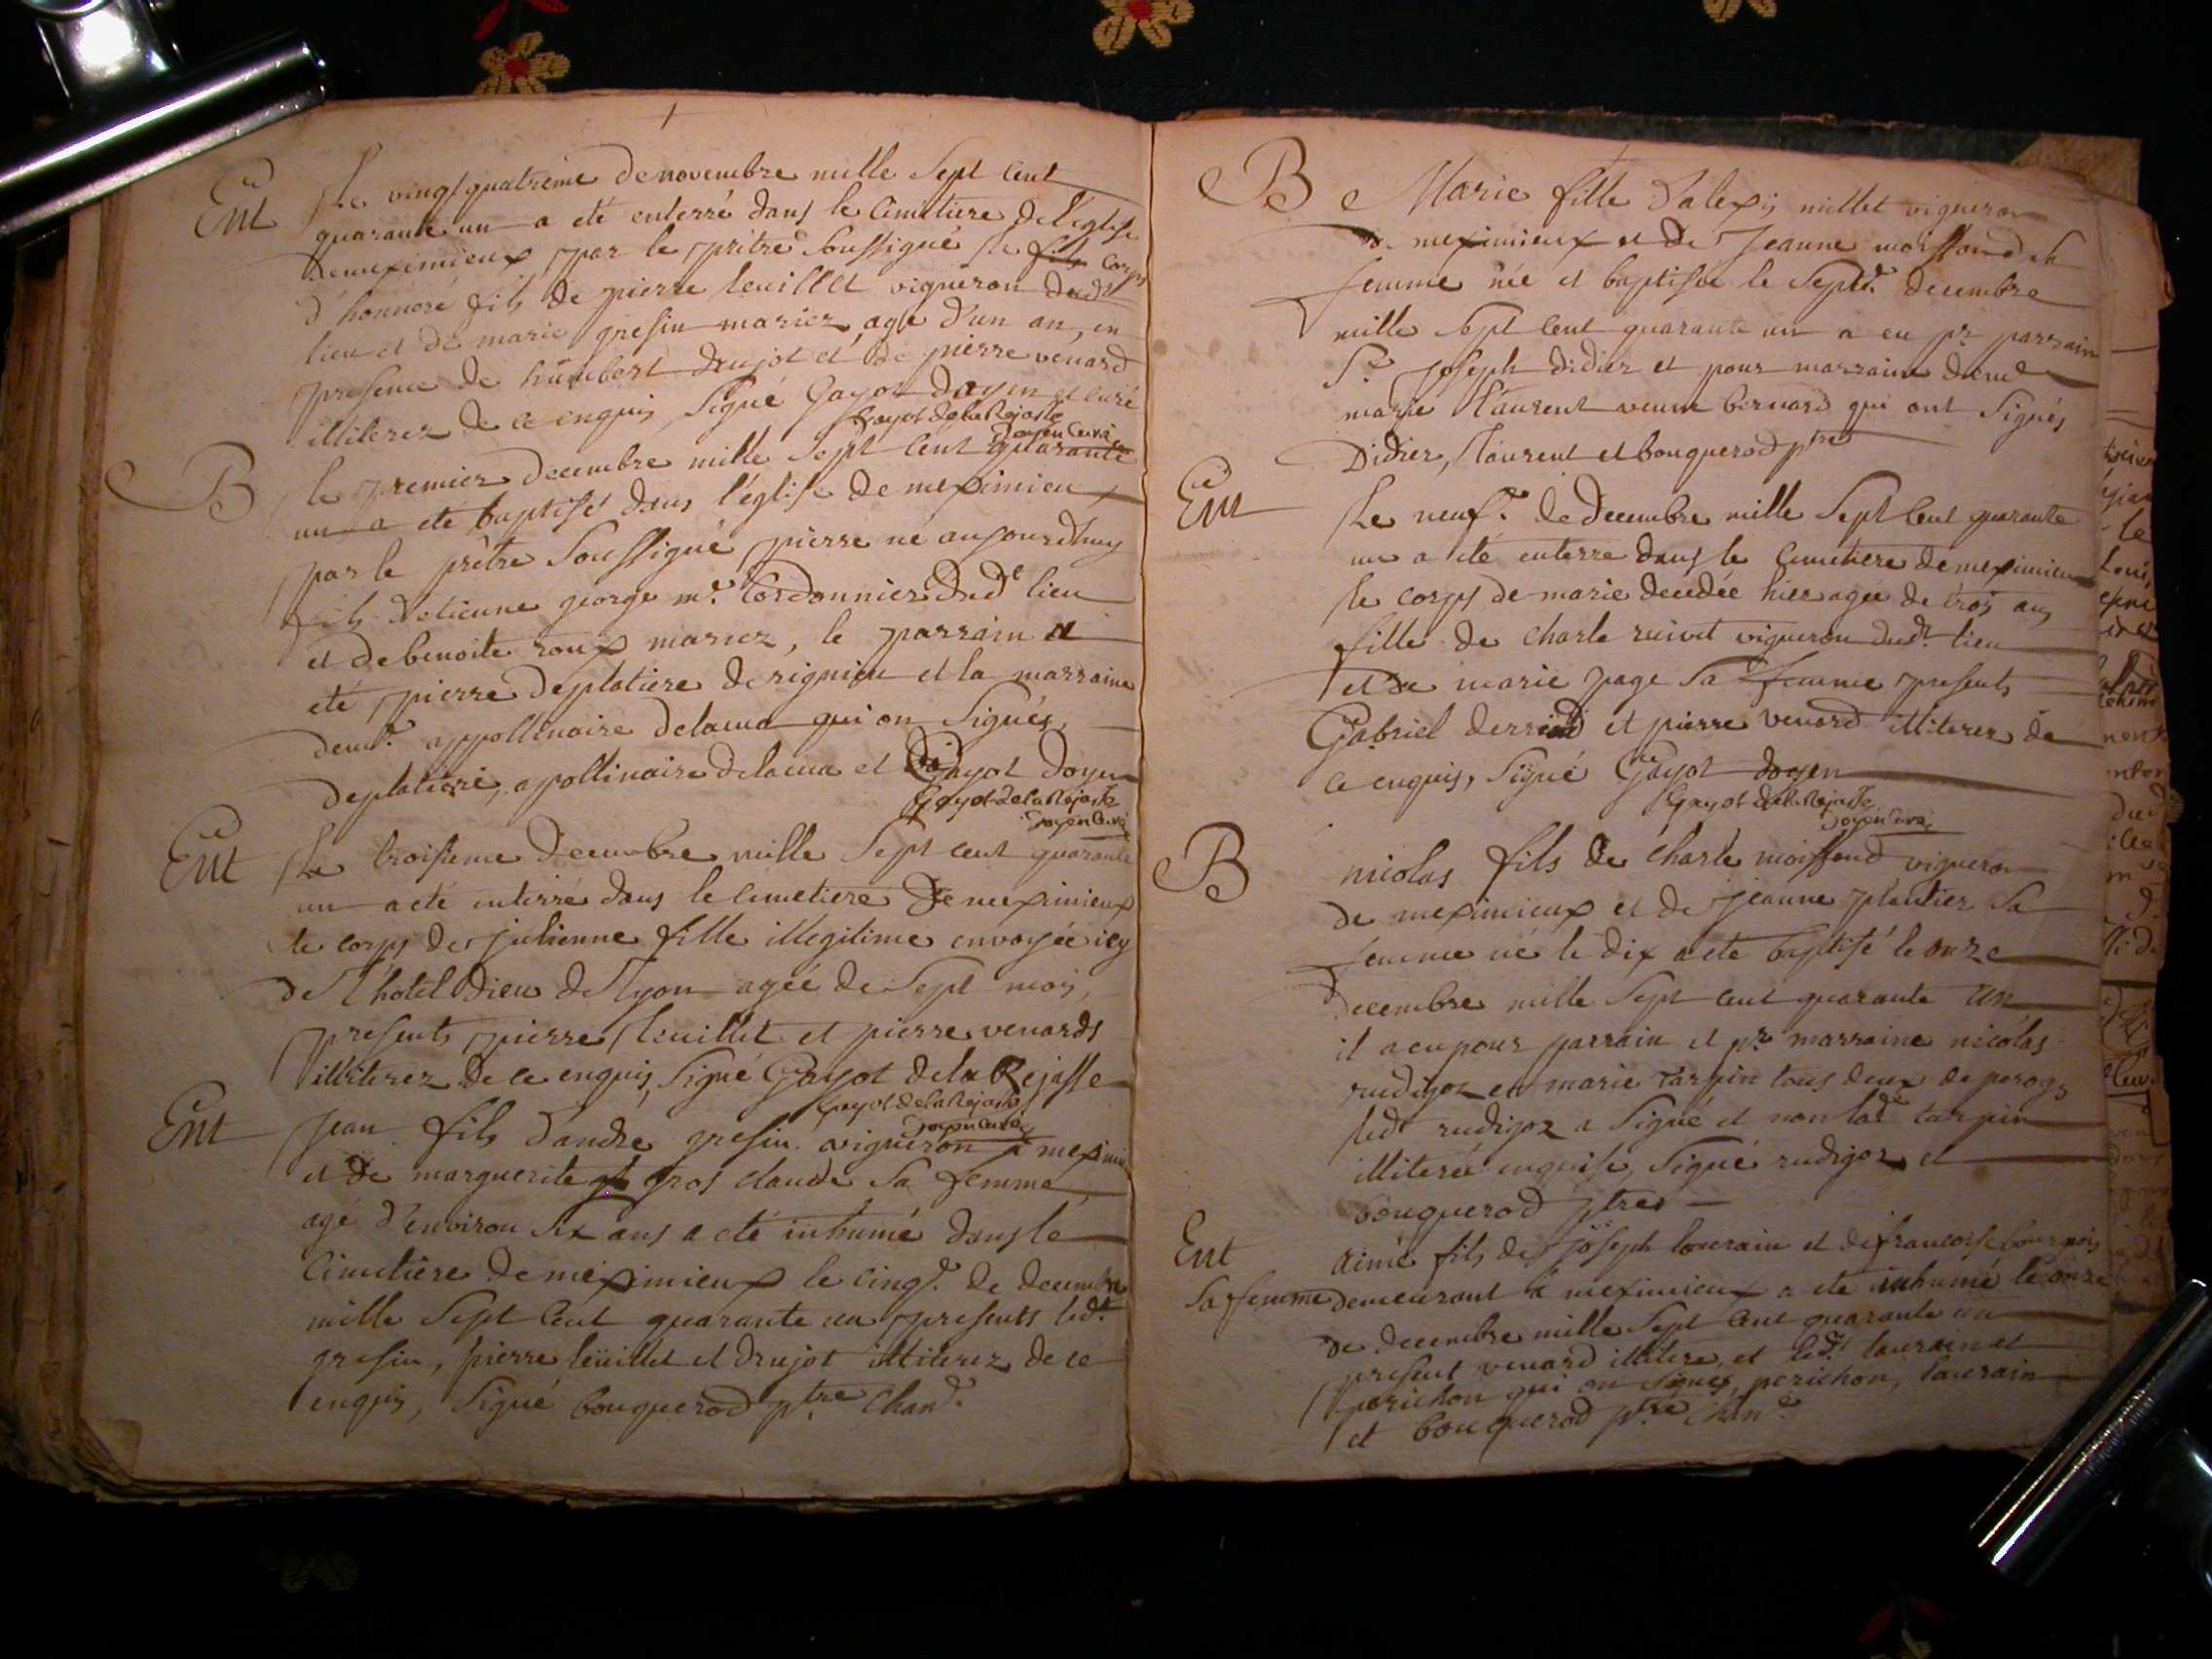 Ent Le vingt quatrieme de novembre mille Sept Cent
quarante un a eté enterré dans le Cimetiere de l'eglise
demeximieux par le prêtre Soussigné le fils corps
d'honnoré fils de pierre leuillet vigneron dudt
lieu et de marie gresin mariez, age d'un an, en
presence de humbert drujot et de pierre venard
illiterez de ce enquis, Signé Gayot doyen et curé
Gayot de la Rejasse
doyen curé
B le premier decembre mille Sept Cent quarante
un a eté baptisé dans l'église de meximieux
par le prêtre Soussigné pierre né aujourdhuy
fils detienne george me. Cordonnier dude lieu
et debenoite roux mariez, le parrain a
eté pierre deplatiere de rignieu et la marraine
demle. appollinaire delacua qui on Signés,
deplatiere, apollinaire delacua et Gayot doyen
Gayot de la Rejasse
doyen curé
Ent Le troisieme decembre mille Sept cent quarante
un a eté enterré dans le cimetiere de meximieux
le corps de julienne fille illegitime envoyée icy
de l'hotel Dieu de Lyon agée de Sept mois,
presents pierre leuillet et pierre venards
illiterez de ce enquis, Signé Gayot de la Rejasse
Gayot de la Rejasse
doyen curé
Ent Jean fils dandré gresin vigneron a mexim
et de marguerite gros claude Sa femme,
agé d'environ Six ans a eté inhumé dans le
Cimetiere de meximieux le cinqe. de decembre
mille Sept Cent quarante un presents ledt.
gresin, pierre leüillet et drujot illiterez de ce
enquis, Signé bouquerod ptre chane.
B Marie fille d'alexis millet vigneron
de meximieux et de Jeanne moissond sa
femme née et baptisée le Septe. decembre
mille Sept Cent quarante un a eu pr. parrain
Sr. joseph didier et pour marraine deme
marie Laurent veuve bernard qui ont Signés
Didier, Laurent et bouquerod ptre
Ent Le neufe. de decembre mille Sept Cent quarante
un a eté enterré dans le Cimetiere demeximieux
le corps de marie decedée hier agée de trois ans
fille de charle ruivet vigneron dudt. lieu
et de marie page Sa femme presents
Gabriel et pierre venard illiterez de
ce enquis, Signé Gayot doyen
Gayot de la Rejasse
doyen curé
B nicolas fils de charle moissond vigneron
de meximieux et de jeanne plantier Sa
femme né le dix a eté baptisé le onze
decembre mille Sept cent quarante un
il a eu pour parrain et pr. marraine nicolas
rudigoz et marie tarpin tous deux de peroges
ledt rudigoz a Signé et non lade tarpin
illiterée enquise, Signé rudigoz et
bouquerod ptre
Ent aimé fils de joseph lourain et de francoise bourgeois
Sa femme demeurant a meximieux a eté inhumé le onze
de decembre mille Sept Cent quarante un
present venard illitere, et ledt. laurain et
perichon qui on Signés, perichon, laurain
et bouquerod ptre chane.